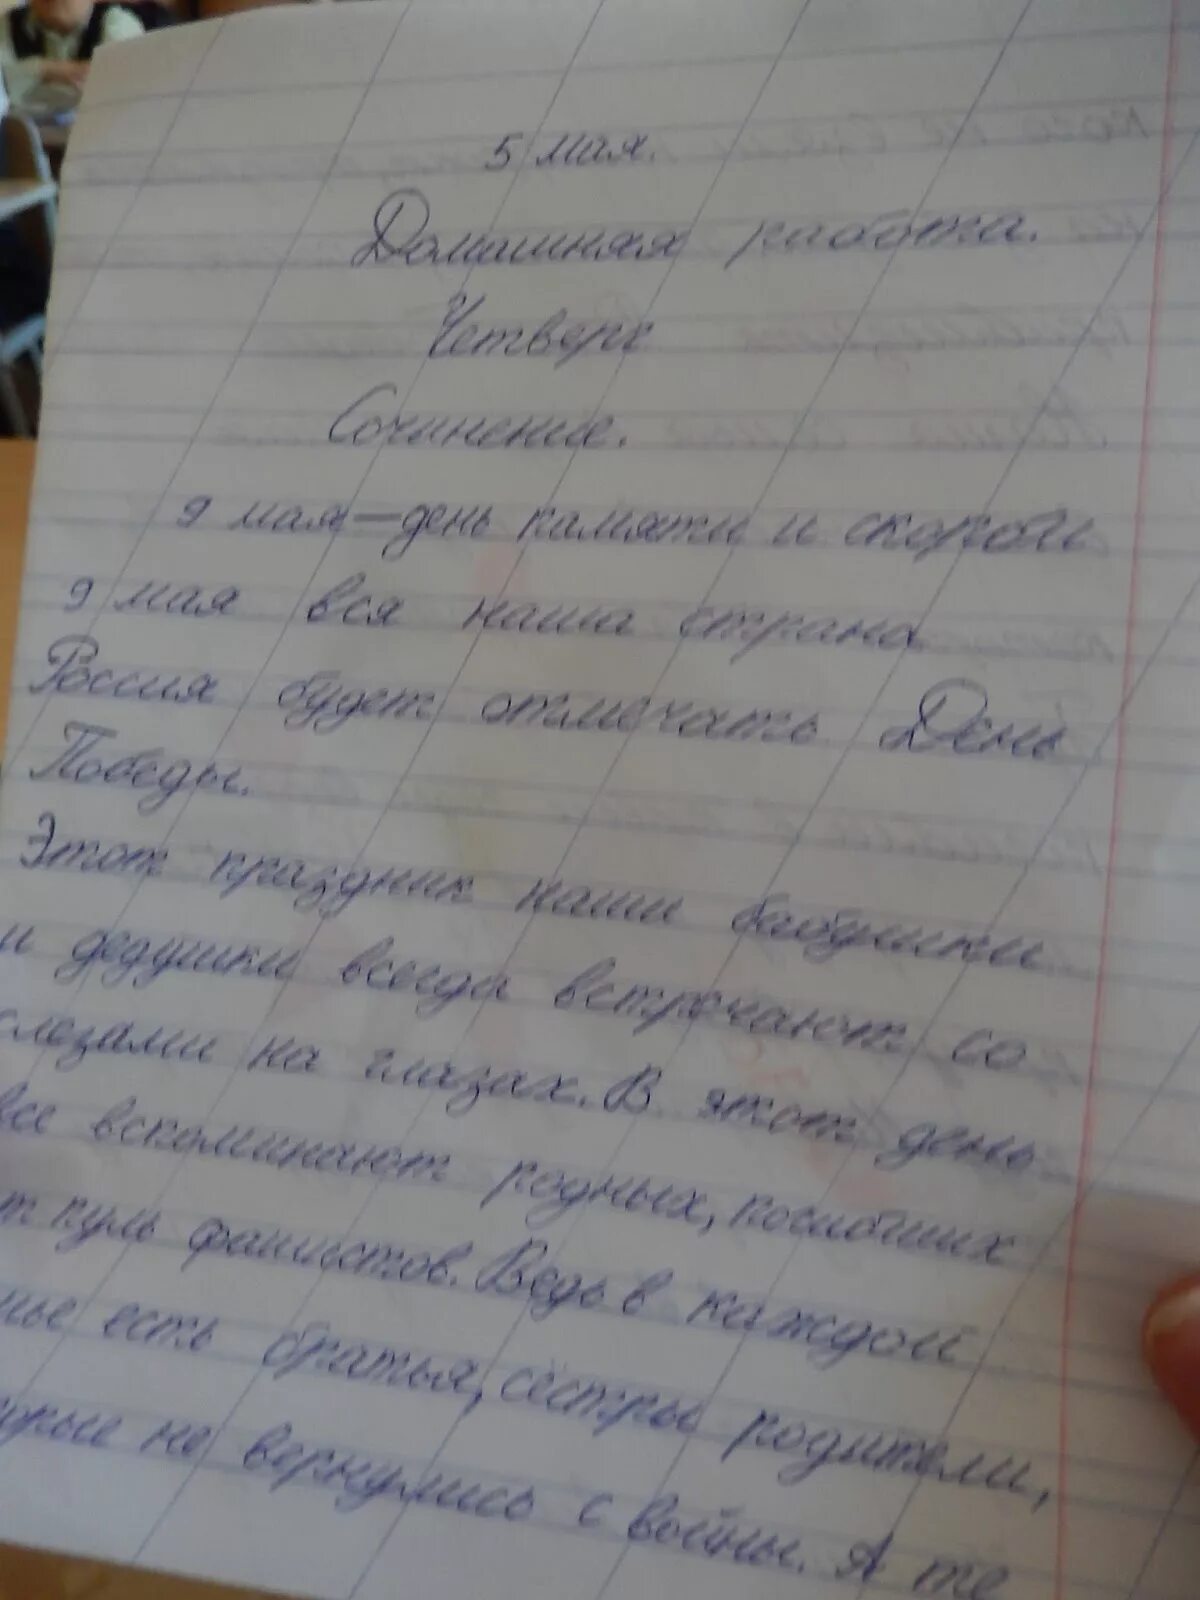 5 мая.
Домашняя работа.
Четверг
Сочинение.
9 мая — день памяти и скорби
9 мая вся наша страна
Россия будет отмечать День
Победы.
Этот праздник наши бабушки
и дедушки всегда встречают со
слезами на глазах. В этот день
все вспоминают родных, погибших
т пуль фашистов. Ведь в каждой
мье есть братья, сёстры родители,
орые не вернулись с войны. А те